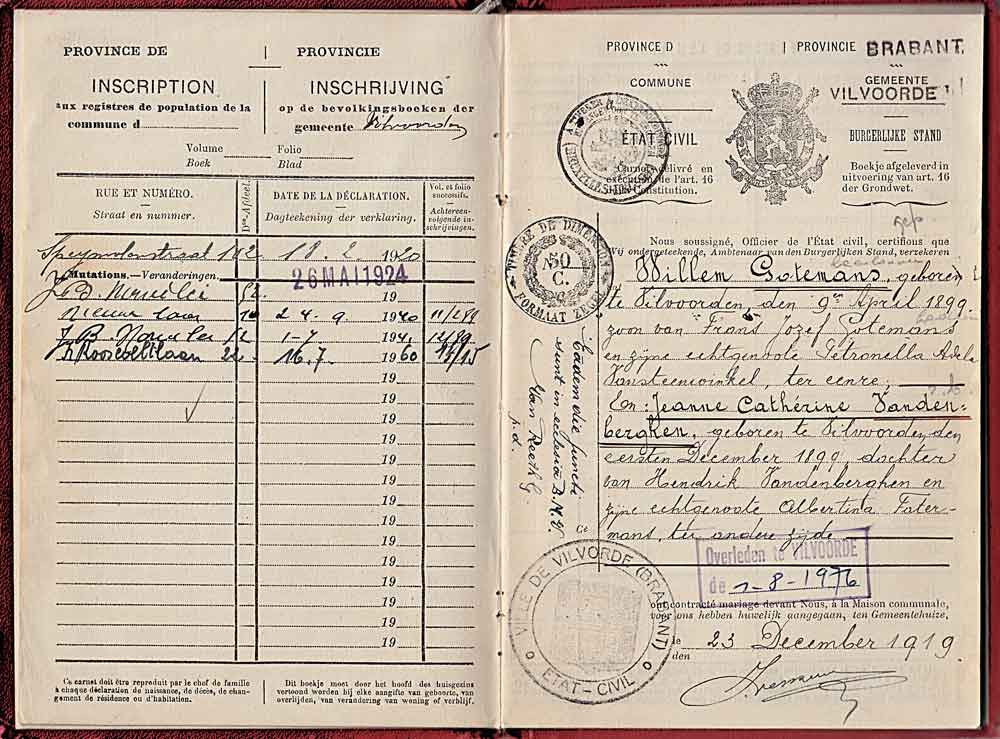 PROVINCE DE | PROVINCIE
INSCRIPTION
aux registres de population de la
commune d
INSCHRIJVING
op de bevolkingsboeken der
gemeente Vilvoorden
Volume Folio
Boek Blad
RUE ET NUMÉRO.
Straat en nummer.
DATE DE LA DÉCLARATION.
Dagteekening der verklaring.
Vol. et folio
successifs.
Achtereen-
volgende in-
schrijvingen.
162 18. 2. 1920
Mutations.—Veranderingen.
26 MAI 1924
J. B. 52. 19
Nieuw laan 24. 9. 1940 11/289
J. B. 52 1-7. 1941
Rooseveltlaan 22. 16.7 1960
19
19
19
19
19
19
19
19
19
19
19
19
19
Ce carnet doit être reproduit par le chef de famille
à chaque déclaration de naissance, de décès, de chan-
gement de résidence ou d'habitation.
Dit boekje moet door het hoofd des huisgezins
vertoond worden bij elke aangifte van geboorte, van
overlijden, van verandering van woning of verblijf.
PROVINCE D | PROVINCIE BRABANT.
COMMUNE
GEMEENTE
VILVOORDE
ÉTAT CIVIL
BURGERLIJKE STAND
Carnet délivré en
exécution de l'art. 16
Constitution.
Boekje afgeleverd in
uitvoering van art. 16
der Grondwet.
TIMBRE DE DIMENSION
50
C.
FORMAAT ZEGEL
Nous soussigné, Officier de l'État civil, certifions que
Wij ondergeteekende, Ambtenaar van den Burgerlijken Stand, verzekeren
Willem Gotemans, geboren
te Vilvoorden, den 9en April 1899,
zoon van Frans Jozef Gotemans
en zijne echtgenoote Petronella Adela
Vansteenwinkel, ter eenre;
En: Jeanne Cathérine Vanden-
berghen, geboren te Vilvoorden, den
eersten December 1899, dochter
van Hendrik Vandenberghen en
zijne echtgenoote Albertina Fater-
mans, ter andere zijde
Eadem die juncti
sunt in ecclesia B.M.V.
Van Reeth G.
p.d.
Ce
Overleden te VILVOORDE
de 1-8-1976
VILLE DE VILVORDE (BRABANT)
ÉTAT-CIVIL
ont contracté mariage devant Nous, à la Maison communale,
voor ons hebben huwelijk aangegaan, ten Gemeentehuize,
le
den 23 December 1919.